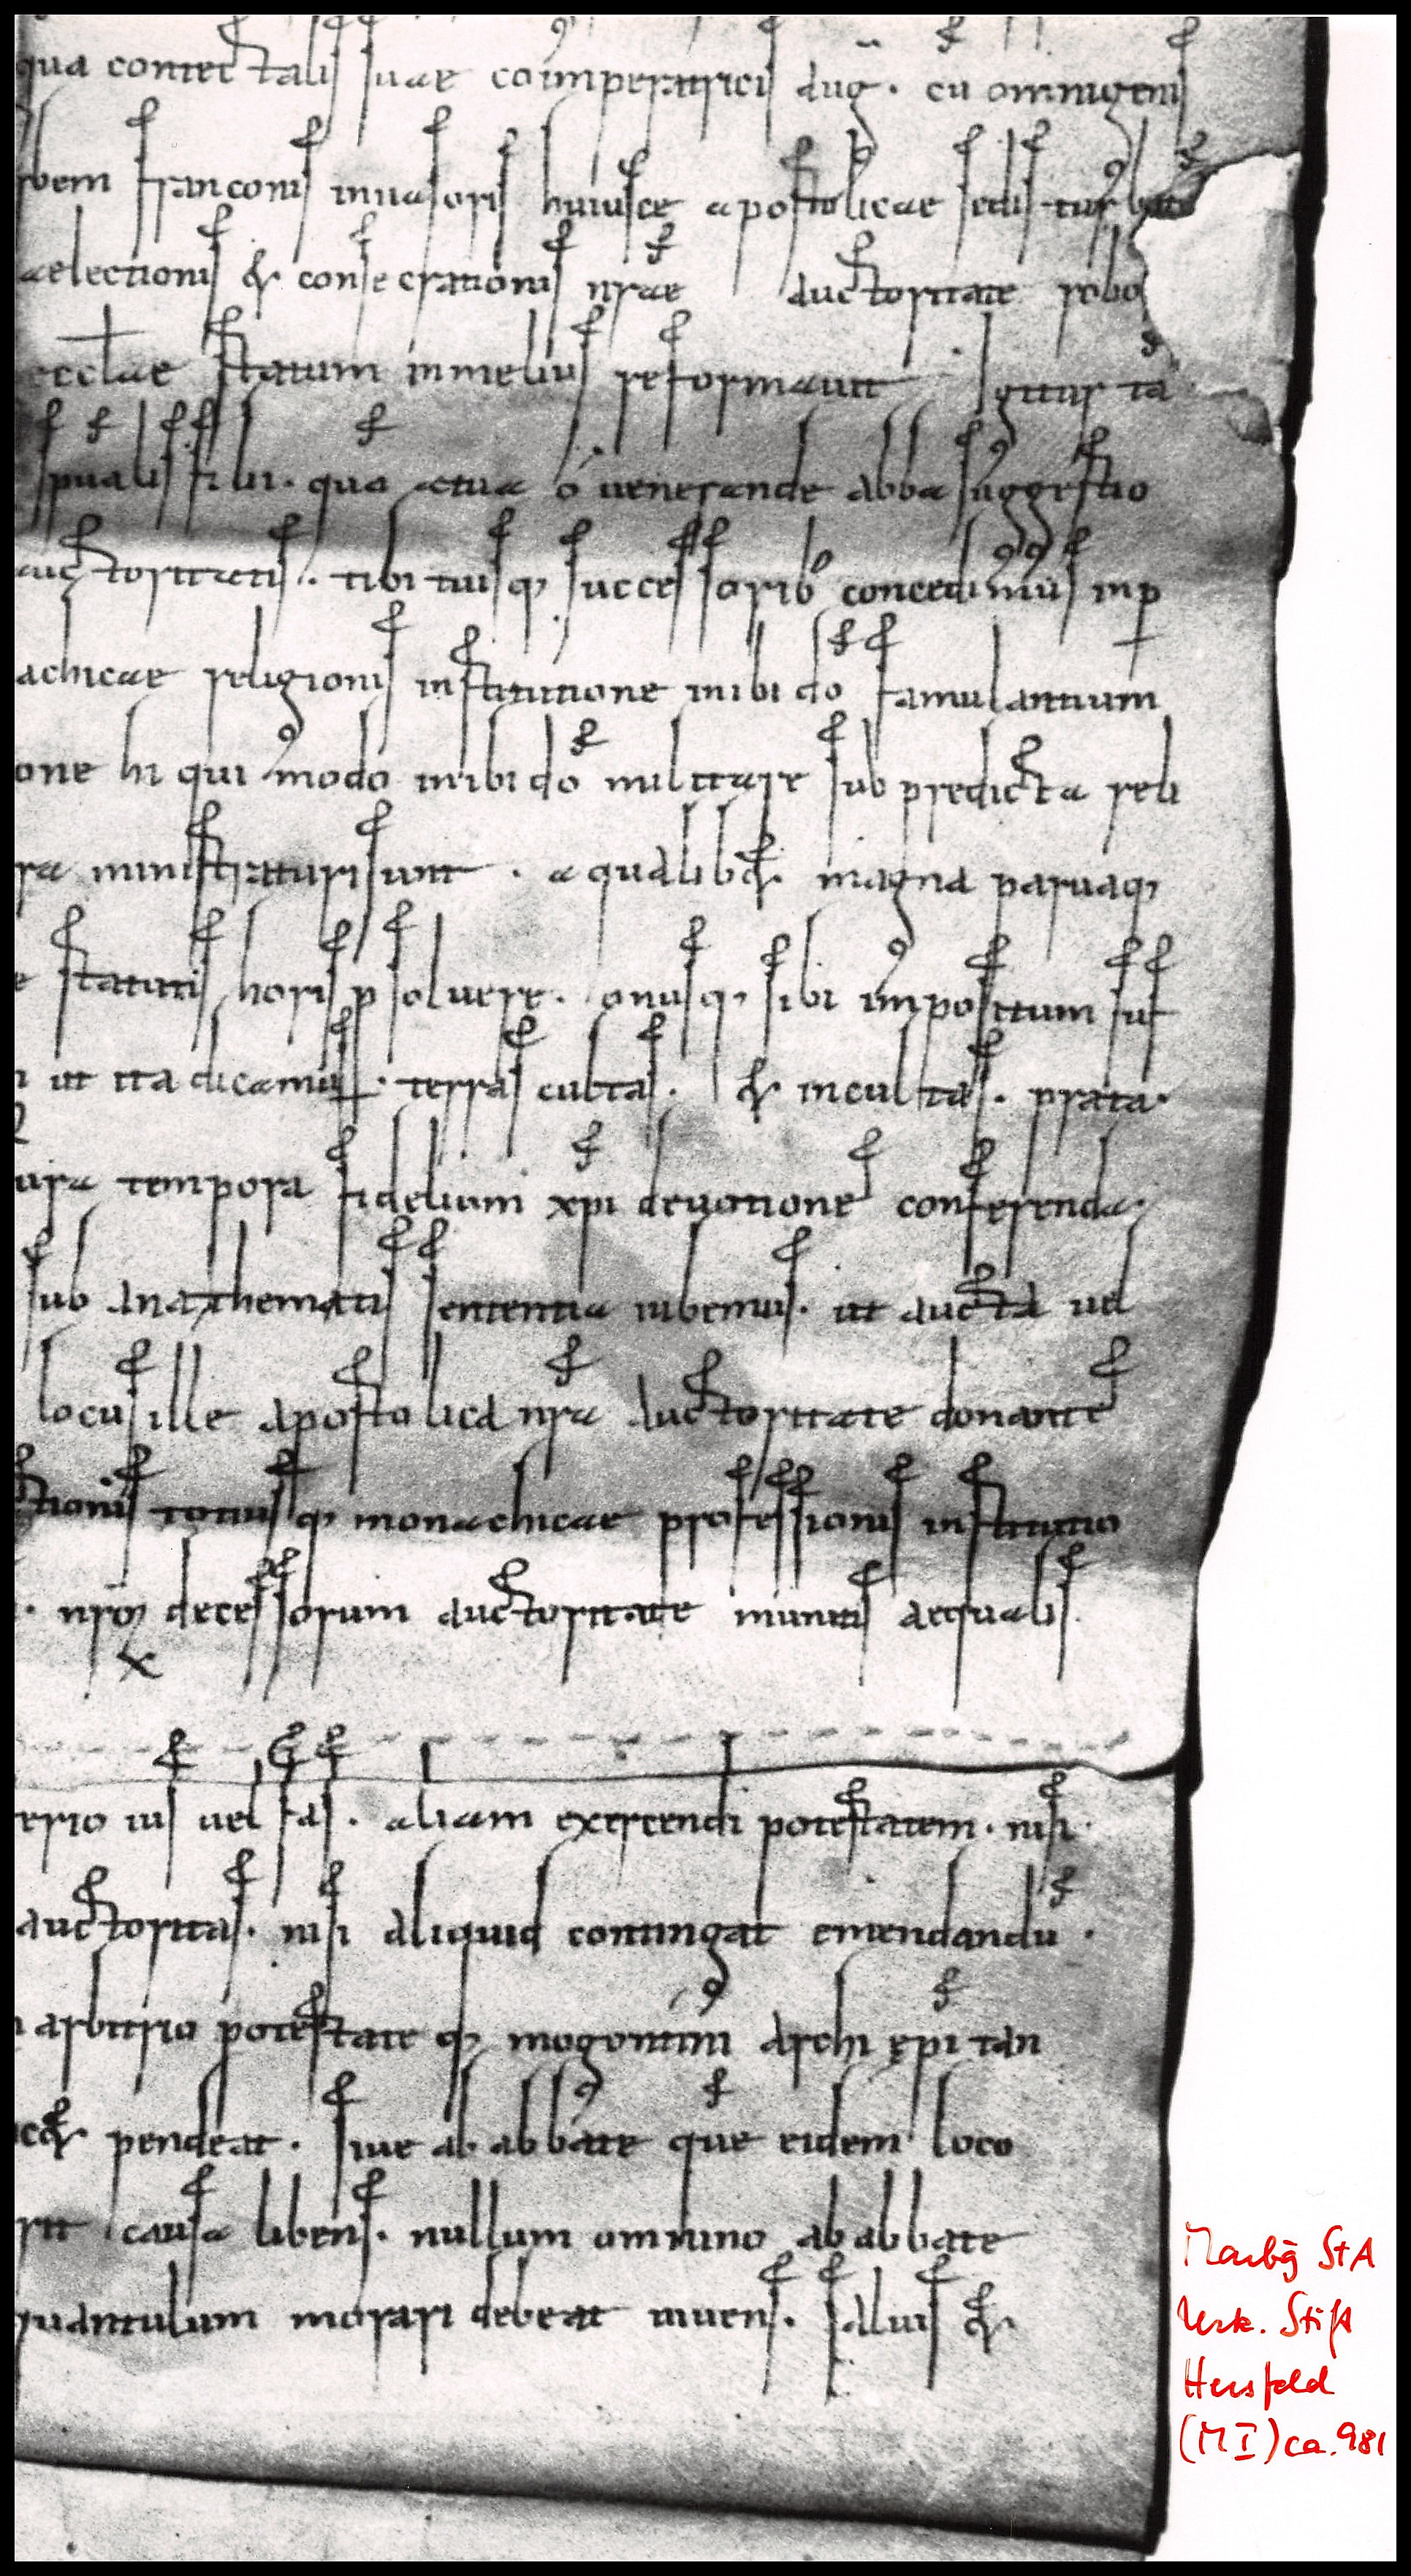 qua contectalis suae coimperatricis aug. cū omnigenis
rbem franconis inuasoris huiusce apostolicae sedis turbato
aelectionis & consecrationis nr̄ae auctoritate robo
eccłae statum in melius reformauit Igitur tā
sp̄ualis filii. qua actua ó uenerande abba suggestio
auctoritatis. tibi tuisq; successorib; concedimus inp
achicae religionis institutione inibi dō famulantium
one hi qui modo inibi dō militare sub predicta reli
ra ministraturi sunt. a qualib& magna paruaq;
e statutis horis psoluere. onusq; sibi impositum suf
ut ita dicamus. terras cultas. & incultas. prata.
ura tempora fidelium xp̄i deuotione conferenda.
sub anathematis sententia iubemus. ut aucta uel
locus ille apostolica nr̄a auctoritate donante
ctionis totiusq; monachicae professionis institutio
. nr̄oꝝ decessorum auctoritate munitis aequalis.
erio ius uel fas. aliam exercendi potestatem. nisi.
auctoritas. nisi aliquid contingat emendandū.
arbitrio potestateq; mogontini archi ep̄i tan
c& pendeat. siue ab abbate quē eidem loco
rit causa libens. nullum omnino ab abbate
quantulum morari debeat inuens. saluis &
Marbg StA
Urk. Stift
Hersfeld
(M I) ca. 981